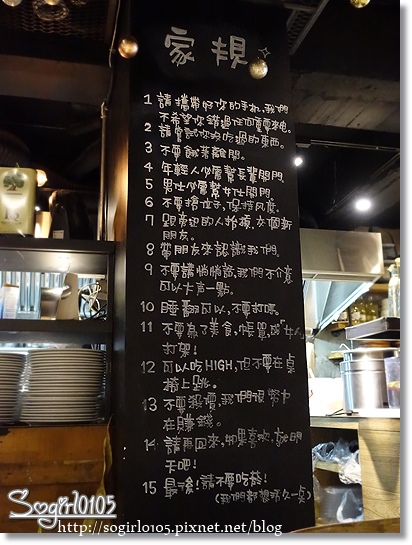 家規
1 請攜帶好你的手机、我們
不希望你錯過任何重要來电。
2 請嘗試你沒吃過的東西。
3 不要餓著離開。
4 年輕人必需幫長輩開門
5 男仕必需幫女仕開門
6 不要搶位子，保持风度。
7 跟旁邊的人拍摸，交個新
朋友。
8 帶朋友來認識我們。
9 不要講悄悄話，我們不介意
可以大声一點。
10 睡翻可以，不要打呼。
11 不要為了美食、帳單，或「女人」
打架！
12 可以吃HIGH，但不要在桌
椅上跳。
13 不要殺價，我們很努力
在賺錢。
14 請再回來，如果喜欢，就明
天吧！
15 最後！請不要吃菸！
（我們都想活久一点）
Sogirl0105
http://sogirl0105.pixnet.net/blog